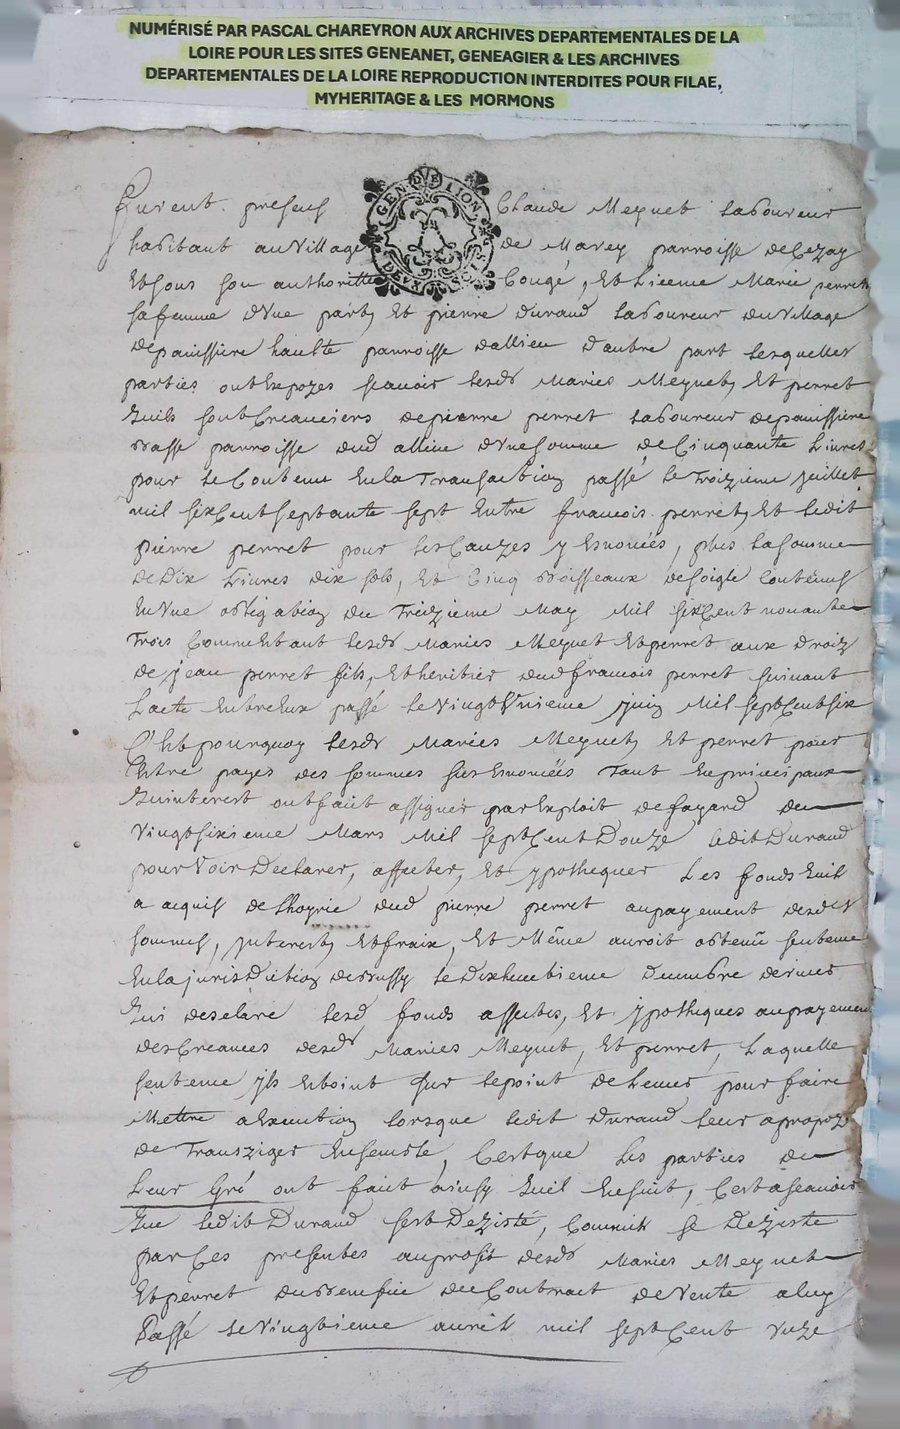 NUMÉRISÉ PAR PASCAL CHAREYRON AUX ARCHIVES DEPARTEMENTALES DE LA
LOIRE POUR LES SITES GENEANET, GENEAGIER & LES ARCHIVES
DEPARTEMENTALES DE LA LOIRE REPRODUCTION INTERDITES POUR FILAE,
MYHERITAGE & LES MORMONS
GEN DE LION
DEUX SOLS
furent presens Claude Meynet laboureur
habitant au village de Marey parroisse de Cezay
Et sous son authoritte Congé, Et Licence Marie perret
sa femme d'Vne part, Et pierre durand laboureur du village
de panissiere haulte parroisse dallieu d'autre part lesquelles
parties ont Expozes scavoir lesds Maries Meynet, Et perret
quils sont Creanciers de pierre perret laboureur de panissiere
basse parroisse dud allieu d'Vne somme de Cinquante Livres
pour le Contenu En la Transaction passé le Troizieme juillet
mil six Cent septante sept Entre francois perret, Et ledit
pierre perret pour les Cauzes y Enoncées, plus la somme
de Dix Livres dix sols, Et Cinq boisseaux de soigle Contenus
En Vne obligation du Treizieme May Mil six Cent nonante
Trois Comme Estant lesds Maries Meynet Et perret aux droiz
de jean perret fils, Et heritier dud francois perret suivant
Lacte Entre Eux passé le Vingt Vnieme juin Mil sept Cent six
C'Est pourquoy lesds Maries Meynet, Et perret pour
Estre payes des sommes sus Enoncées Tant En principaux
quinterest ont fait assigner par Exploit de fayard du
Vingt sixieme Mars Mil sept Cent Douze ledit Durand
pour Voir Declarer, affecter, Et ypothequer Les fonds quil
a acquis de Lhoyrie dud pierre perret au payement desdes
sommes, jnterests, Et fraix, Et Même auroit obtenu sentence
En la jurisdiction de bussy le Dixhuitieme Decembre dernier
qui deselare lesd fonds affectes, Et ypotheques au payement
des Creances desds Maries Meynet, Et perret, Laquelle
sentence jls Estoint sur le point de Lever pour faire
Mettre a Execution lorsque ledit durand leur a propozé
de Transziger Ensemble, Cest que les parties de
Leur Gré ont fait ainsy quil Ensuit, Cest a scavoir
que ledit Durand sest Deziste, Comme il se Deziste
par Ces presentes au profit desds Maries Meynet
Et perret du benefice du Contract de Vente a luy
Passé le Vingtieme avril mil sept Cent onze